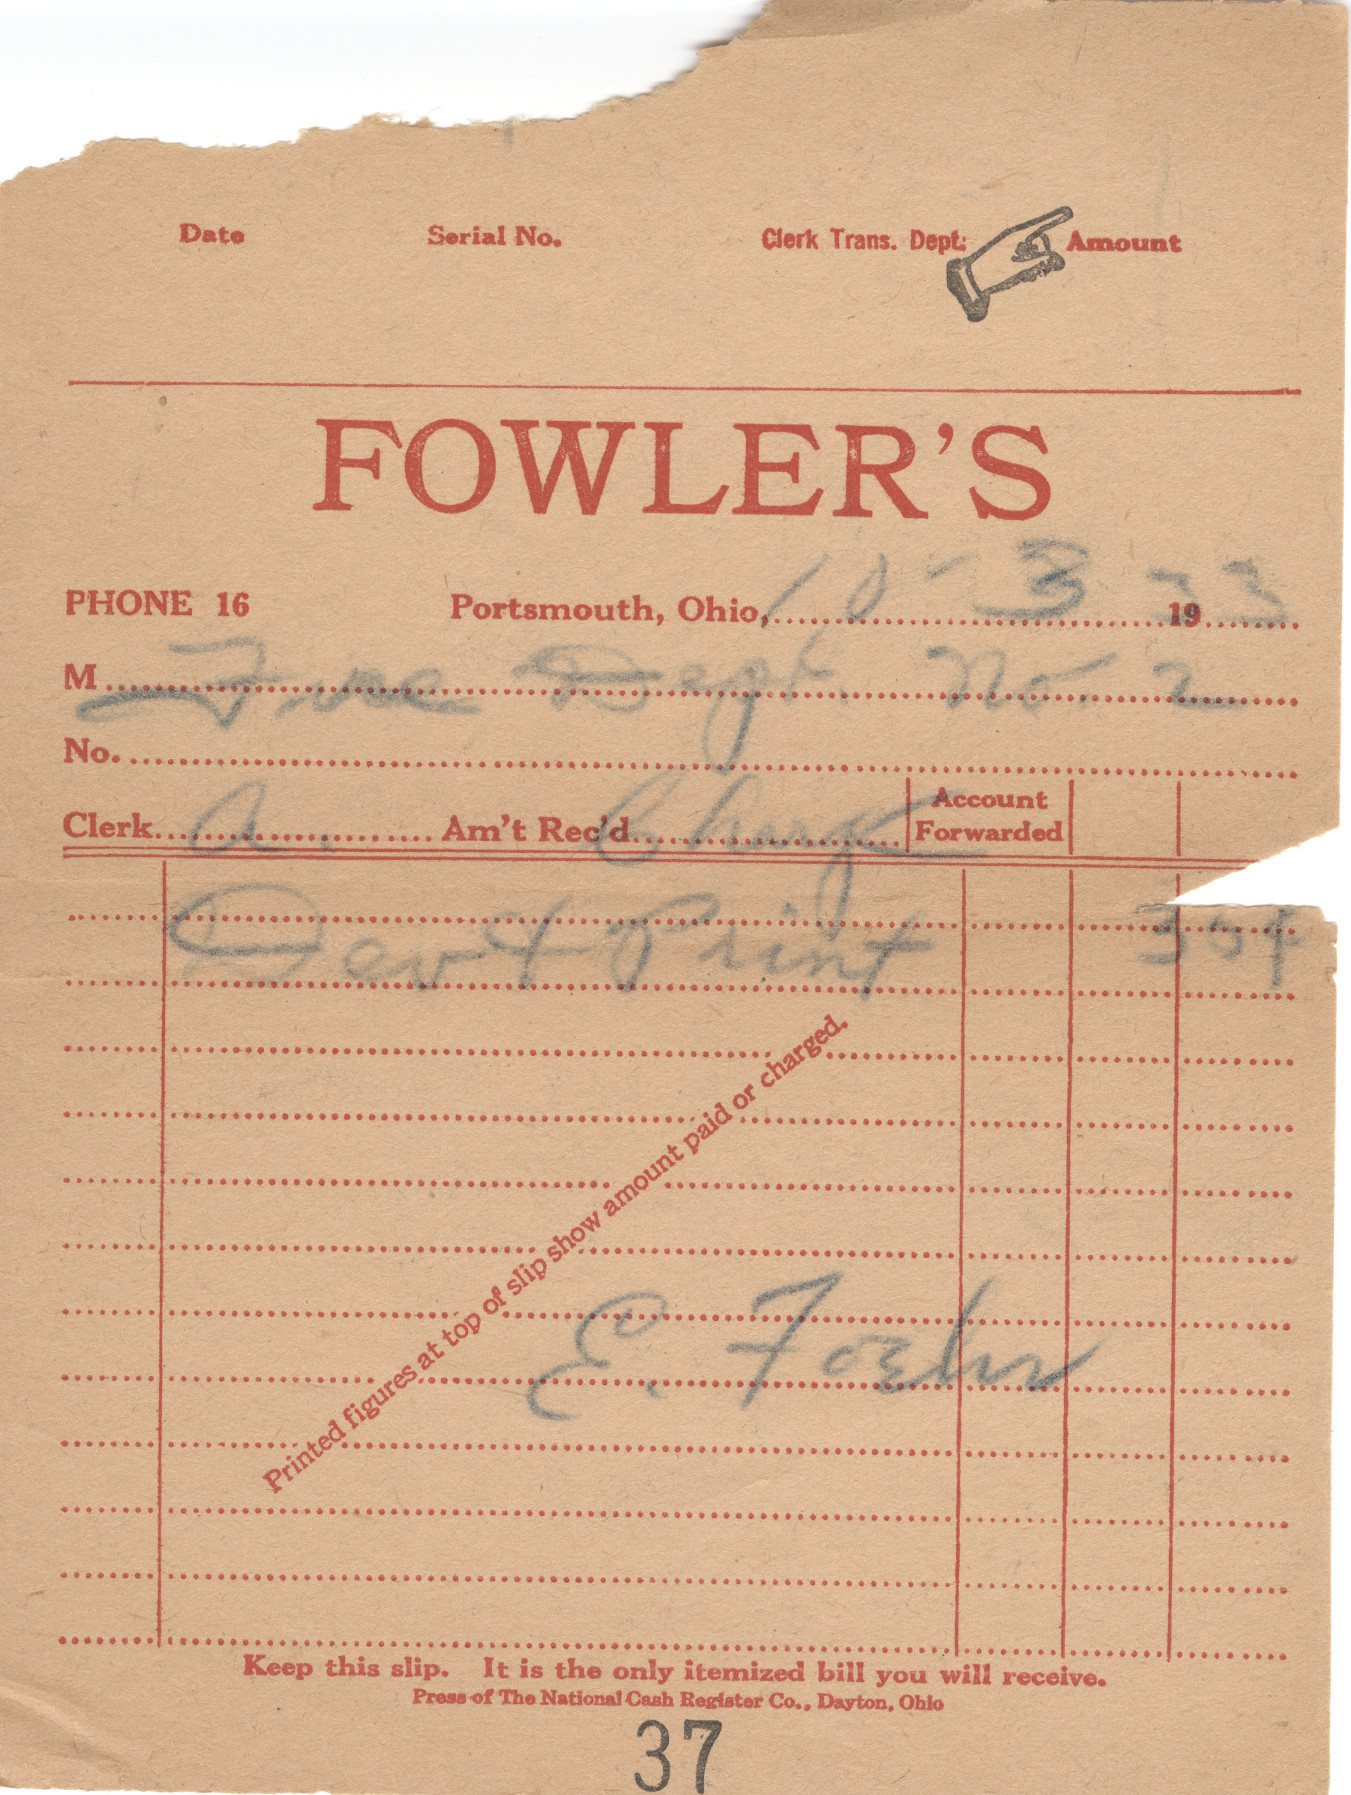 Date Serial No. Clerk Trans. Dept. Amount
FOWLER'S
PHONE 16 Portsmouth, Ohio, 10-3 1933
M Fire Dept. No. 2
No.
Clerk A. Am't Rec'd Chrg Account Forwarded
Dev & Print 354
Printed figures at top of slip show amount paid or charged.
E. Foehr
Keep this slip. It is the only itemized bill you will receive.
Press of The National Cash Register Co., Dayton, Ohio
37